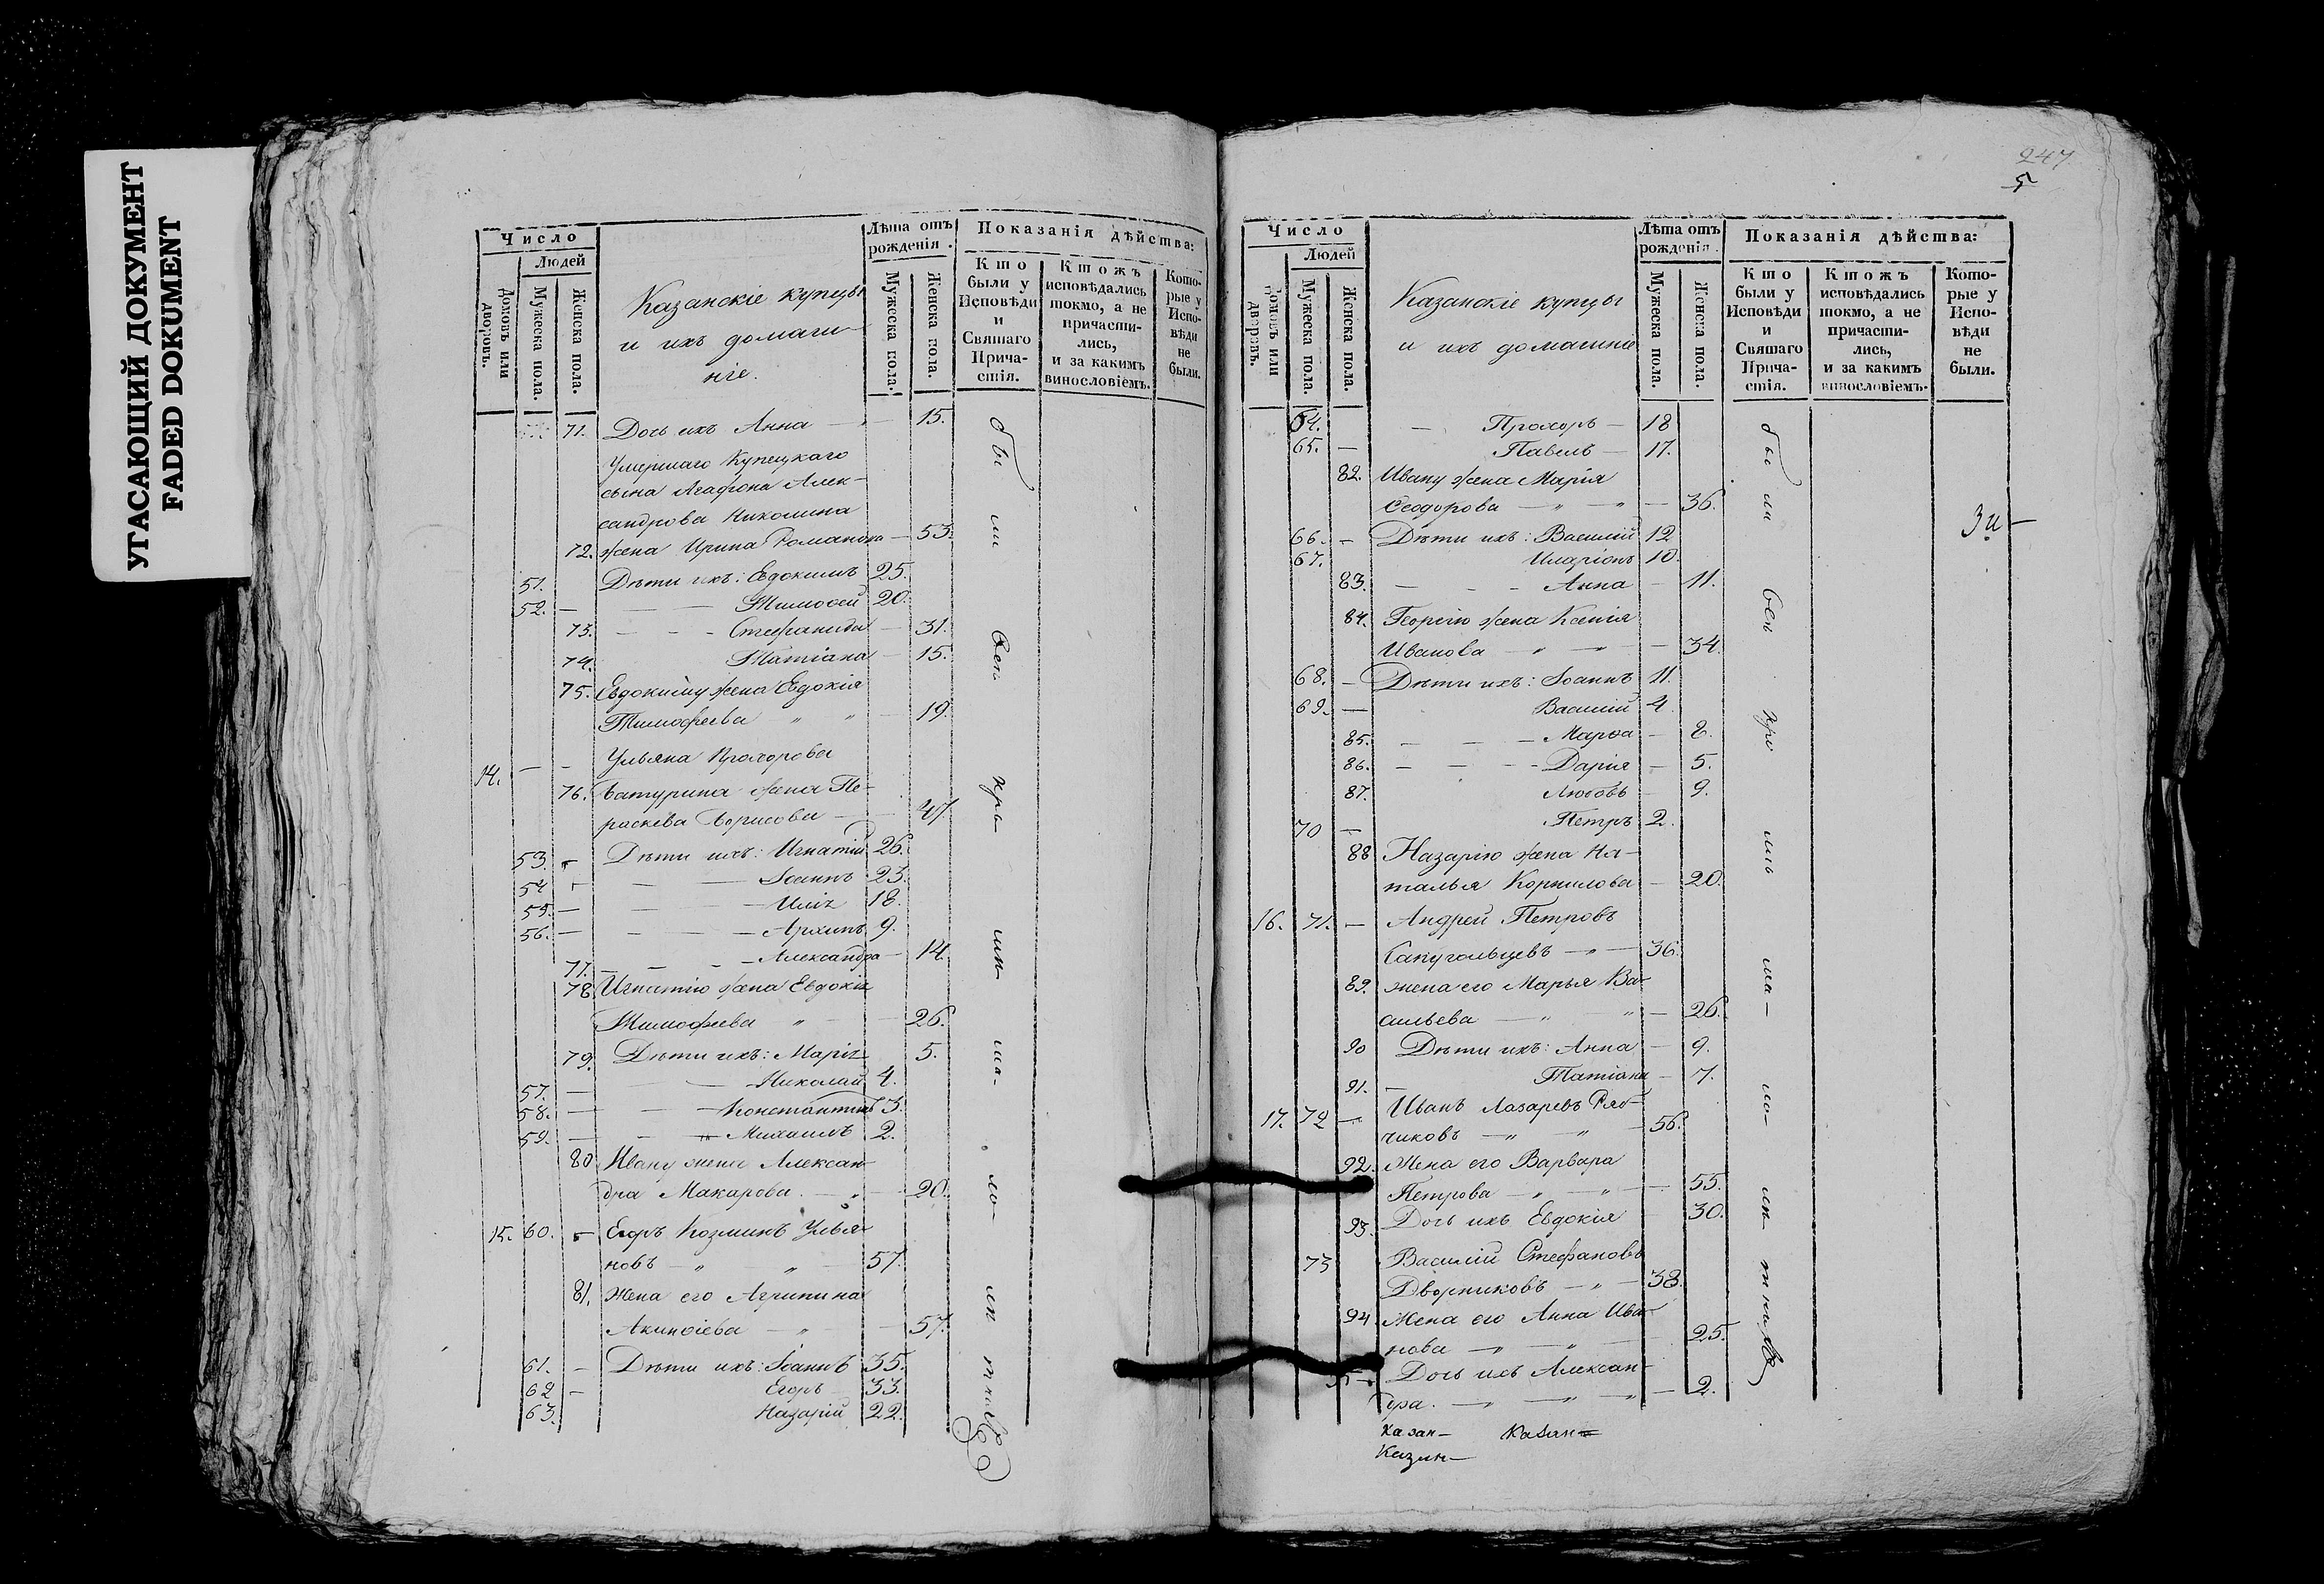 УГАСАЮЩИЙ ДОКУМЕНТ
FADED DOKUMENT
Число
Людей
Домовъ или дворовъ.
Мужеска пола.
Женска пола.
Казанскіе купцы
и ихъ домаш-
ніе.
Лѣта отъ рожденія.
Мужеска пола.
Женска пола.
Показанія дѣйства:
Кто были у Исповѣди и Святаго Прича-стія.
Ктожъ исповѣдались токмо, а не причасти-лись, и за какимъ винословіемъ.
Кото-рые у Испо-вѣди не были.
71. Дочь ихъ Анна — 15.
Умершаго Купецкаго
сына Агафона Алек-
сандрова Николина
72. жена Ирина Романова — 53.
51. Дѣти ихъ: Евдокимъ 25.
52. — Тимофей 20.
73. — Стефанида — 31.
74. Татіана — 15.
75. Евдокиму жена Евдокія
Тимофеева — " " — 19.
14. — — Ульяна Прохорова
76. Батурина жена Пе-
раскева Борисова — 47
53. — Дѣти ихъ: Игнатій 26.
54 — Іоаннъ 23.
55. — Илія 18.
56. — Архипъ 9.
77. — Александра — 14.
78. Игнатію жена Евдокія
Тимофеева " — 26.
79. Дѣти ихъ: Марія 5.
57. — Николай 4.
58. — Константинъ 3.
59. — Михаилъ 2.
80 Ивану жена Алексан-
дра Макарова. — " — 20.
15. 60. — Егоръ Козминъ Улья-
новъ — " " — 57.
81. Жена его Агрипина
Акинѳіева — " — 57.
61. — Дѣти ихъ: Іоаннъ 35.
62 — Егоръ 33.
63. Назарій 22.
бы
ли
247
5
Число
Людей
Домовъ или дворовъ.
Мужеска пола.
Женска пола.
Казанскіе купцы
и ихъ домашніе
Лѣта отъ рожденія.
Мужеска пола.
Женска пола.
Показанія дѣйства:
Кто были у Исповѣди и Святаго Прича-стія.
Ктожъ исповѣдались токмо, а не причасти-лись, и за какимъ винословіемъ.
Кото-рые у Испо-вѣди не были.
64. — Прохоръ — 18
65. — Павелъ — 17.
82. Ивану жена Марія
Ѳеодорова — " — " — 36.
66. — Дѣти ихъ: Василій 12
67. Иларіонъ 10.
83. — Анна — 11.
84. Георгію жена Ксенія
Иванова — " — " — 34.
68. — Дѣти ихъ: Іоаннъ 11.
69. — Василій 4.
85. — Марѳа — 8.
86. — Дарія — 5.
87. Любовь — 9.
70 — Петръ 2.
88 Назарію жена На-
талья Корнилова — 20.
16. 71. — Андрей Петровъ
Сапугольцевъ — " — 36.
89. жена его Марья Ва-
сильева — " " — 26.
90 Дѣти ихъ: Анна — 9.
91. — Татіана — 7.
17. 72 — Иванъ Лазаревъ Ряб-
чиковъ — " " — 56.
92. Жена его Варвара
Петрова — " — " — 55.
93. Дочь ихъ Евдокія — 30.
73 Василій Стефановъ
Дворниковъ — " — 38.
94. Жена его Анна Ива-
нова — " — " — 25.
Дочь ихъ Алексан-
дра. — " — " — " — 2.
бы
ли
Казан- Казан-
Казан-